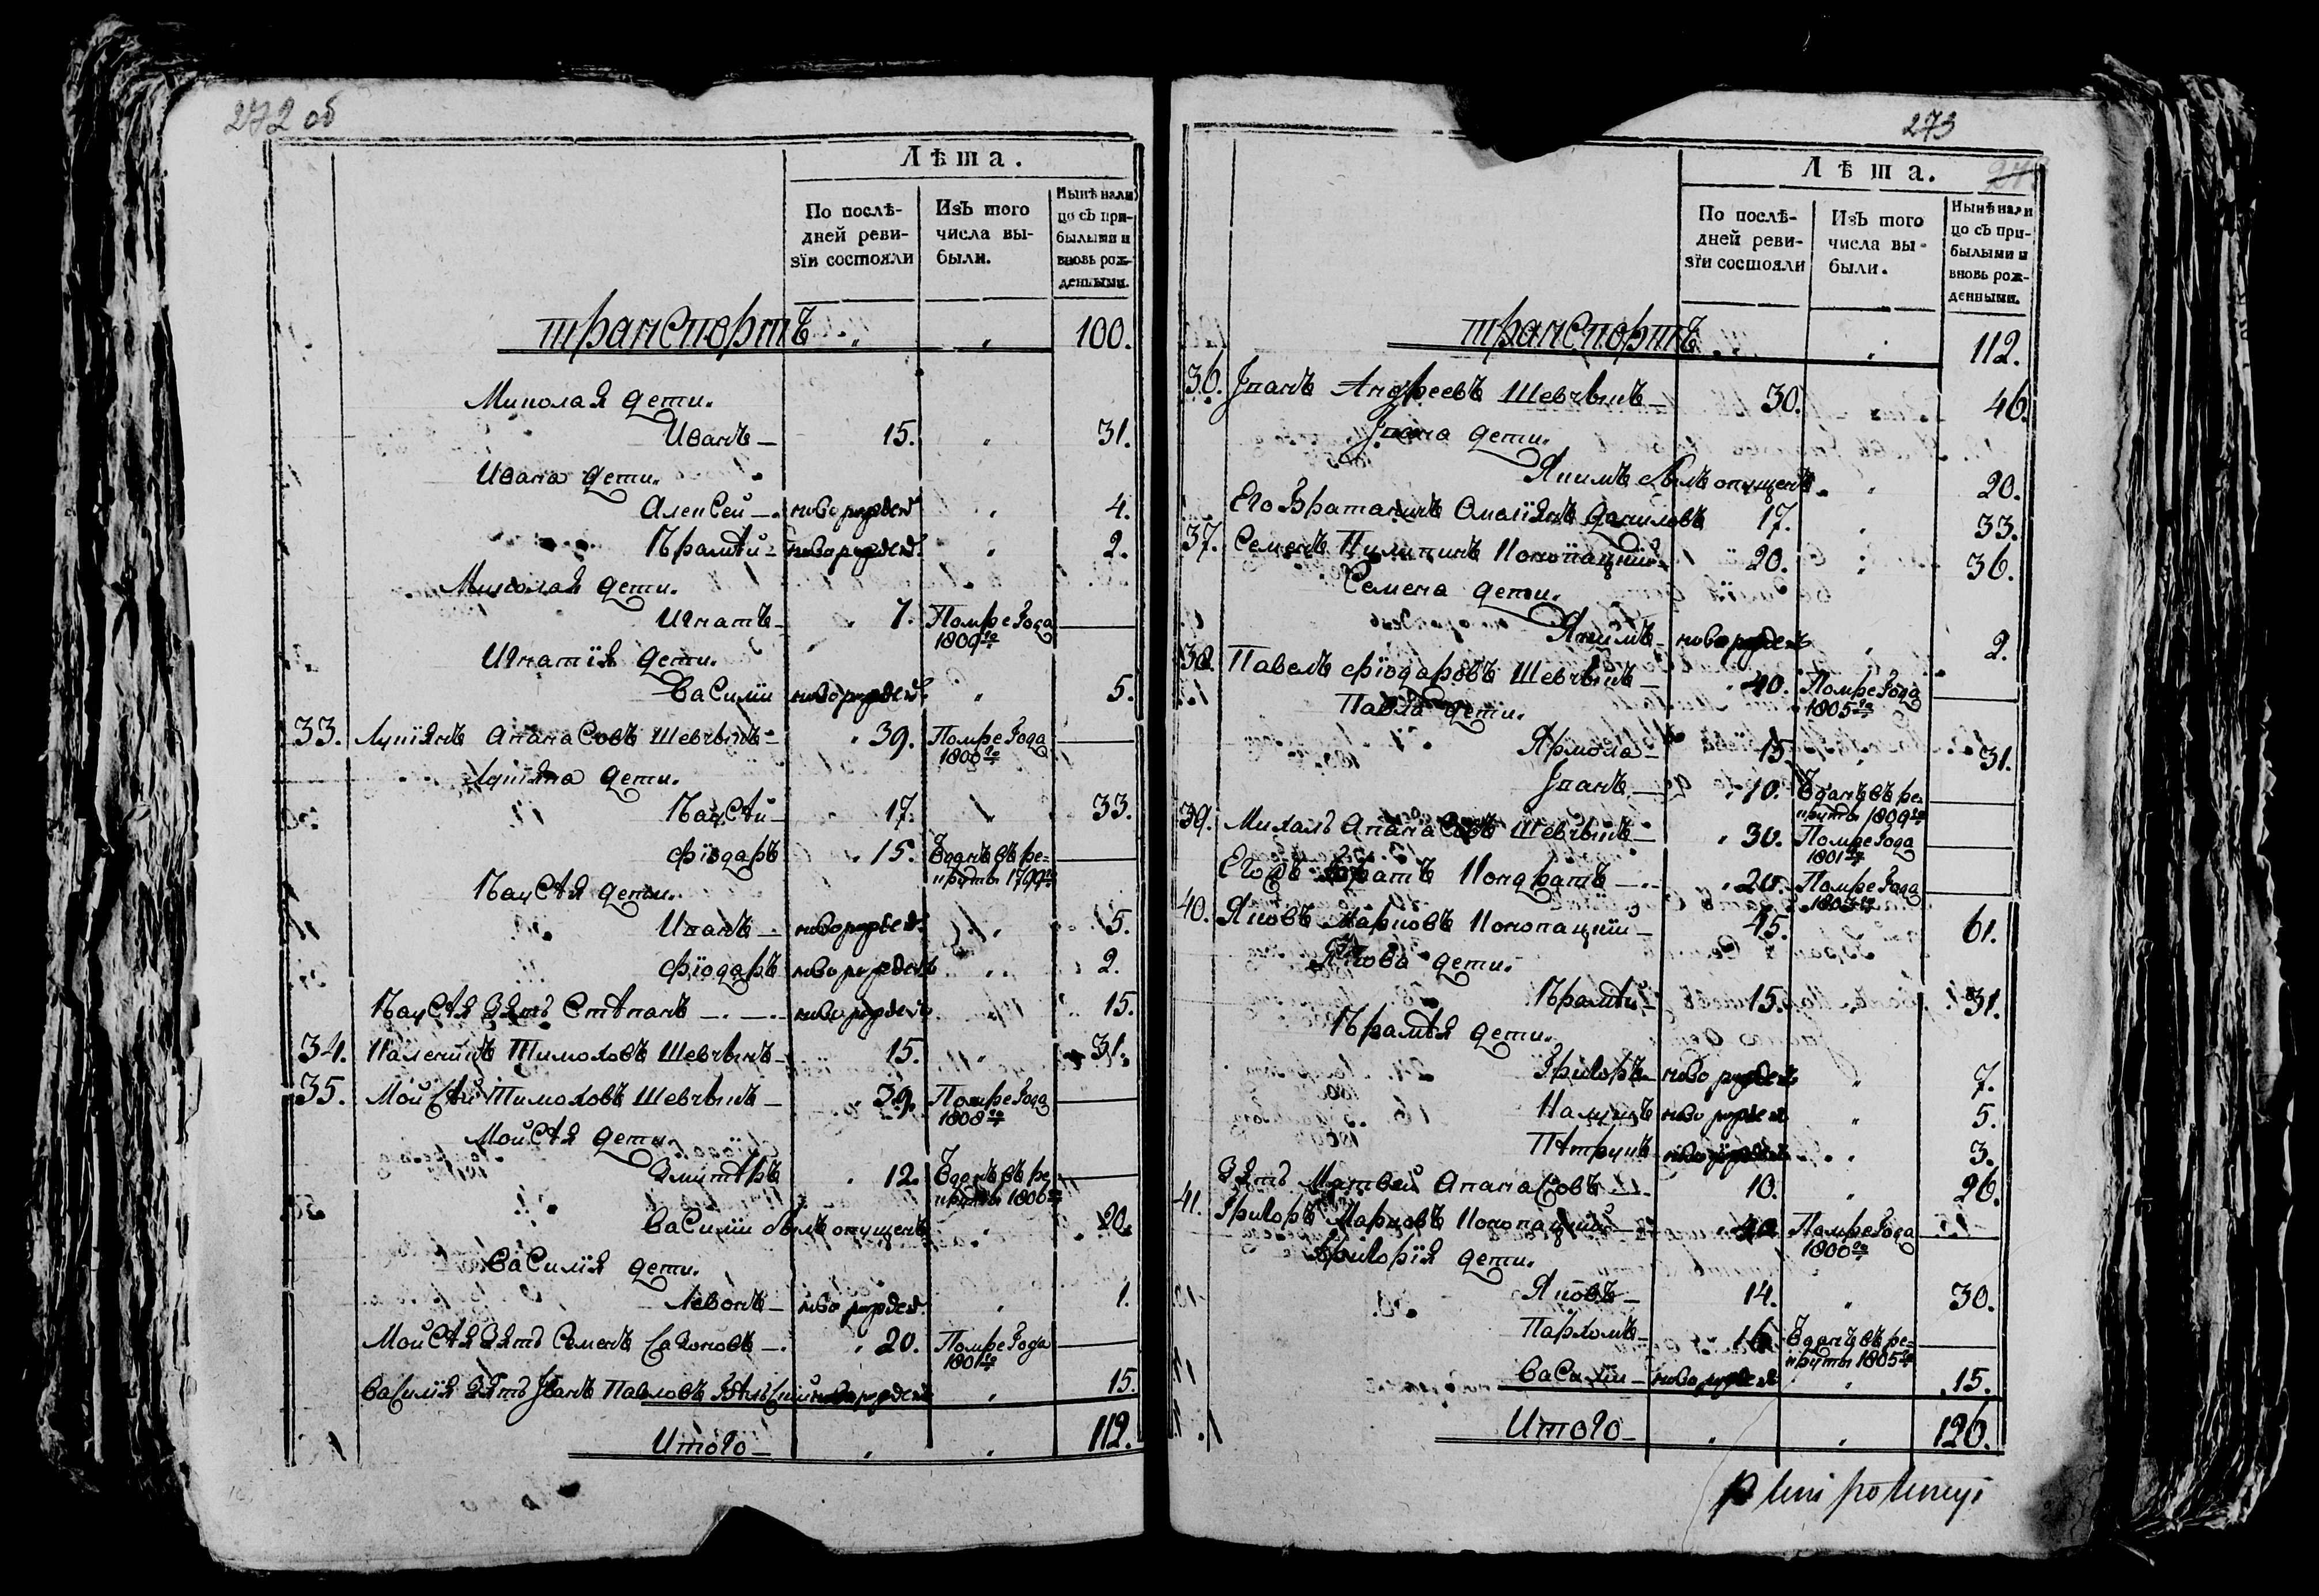 272 об
Лѣта.
По послѣ-
дней реви-
зїи состояли
Изъ того
числа вы-
были.
Нынѣ нали
цо съ при-
былыми и
вновь рож-
денными.
транспортъ „ „ 100.
Миколая дети.
Иванъ — 15. „ 31.
Ивана дети.
Алексей — новорожден „ 4.
Ерамѣй — новорожден. „ 2.
Миколая дети.
Игнатъ — 7. Помре года 1809го —
Игнатїя дети.
Василїи новорожден. „ 5.
33. Лукїянъ Апанасовъ Шевчыкъ — 39. Помре года 1808го —
Лукїяна дети.
Еусѣй — 17. 33.
Фїодаръ 15. Вданъ въ ре=
круты 1799го —
Еусѣя дети.
Иванъ — новорожден. „ 5.
Фїодаръ новорожденъ „ 2.
Еусѣя зять Стѣпанъ — новорожденъ „ 15.
34. Калениkъ Тимоховъ Шевчыкъ — 15. „ 31.
35. Мойсѣй Тимоховъ Шевчыкъ — 39. Помре года 1808го —
Мойсѣя дети.
Змитѣръ 12. Вданъ въ ре
круты 1806го —
Василїи былъ опущенъ „ 20.
Василїя дети.
Левонъ — новорожден. „ 1.
Мойсѣя зять Семенъ Сазоновъ — 20. Помре года 1801го —
Василїя зять Иванъ Павловъ новорожден „ 15.
Итого — „ „ 112.
273
Лѣта.
По послѣ-
дней реви-
зїи состояли
Изъ того
числа вы-
были.
Нынѣ нали
цо съ при-
былыми и
вновь рож-
денными.
транспортъ „ „ 112.
36. Иванъ Андреевъ Шевчыкъ — 30. 46.
Ивана дети.
Якимъ былъ опущенъ „ 20.
Его братаникъ Омелїянъ Даниловъ 17. „ 33.
37. Семенъ Пилипикъ Конопацкїй — 20. „ 36.
Семена дети.
Якимъ — новорожденъ „ 2.
38. Павелъ Фїодаровъ Шевчыкъ — 40. Помре года 1805го —
Павла дети.
Ярмола — 15. „ 31.
Иванъ — 10. Вданъ въ ре-
круты 1809го —
39. Михалъ Апанасовъ Шевчыкъ — 30. Помре года 1801го —
Егожъ братъ Кондратъ — 20. Помре года 1803го —
40. Яковъ Марковъ Конопацкїй — 45. 61.
Якова дети.
Ерамѣй — 15. „ 31.
Ерамѣя дети.
Григоръ — новорожден „ 7.
новорожден „ 5.
Пѣтрукъ — новорожден „ 3.
Зять Матвей Апанасовъ — 10. „ 26.
41. Григоръ Марковъ Конопацкїй — 40. Помре года 1800го —
Григорїя дети.
Яковъ — 14. „ 30.
Пархомъ — 16. Вданъ въ ре=
круты 1805го —
Василїи — новорожден „ 15.
Итого — „ „ 126.